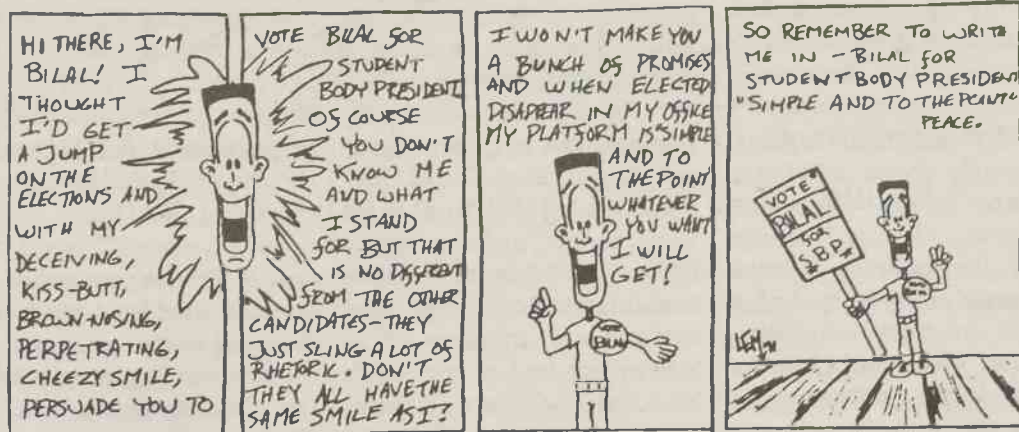 HI THERE, I'M
BILAL! I
THOUGHT
I'D GET
A JUMP
ON THE
ELECTIONS AND
WITH MY
DECEIVING,
KISS-BUTT,
BROWN-NOSING,
PERPETRATING,
CHEEZY SMILE,
PERSUADE YOU TO
VOTE BILAL FOR
STUDENT
BODY PRESIDENT
OF COURSE
YOU DON'T
KNOW ME
AND WHAT
I STAND
FOR BUT THAT
IS NO DIFFERENT
FROM THE OTHER
CANDIDATES-THEY
JUST SLING A LOT OF
RHETORIC. DON'T
THEY ALL HAVE THE
SAME SMILE AS I?
I WON'T MAKE YOU
A BUNCH OF PROMISES
AND WHEN ELECTED
DISAPPEAR IN MY OFFICE
MY PLATFORM IS SIMPLE
AND TO
THE POINT
WHATEVER
YOU WANT
I WILL
GET!
VOTE
BILAL
SO REMEMBER TO WRITE
ME IN - BILAL FOR
STUDENT BODY PRESIDENT
"SIMPLE AND TO THE POINT"
PEACE.
VOTE
BILAL
FOR
S.B.P.